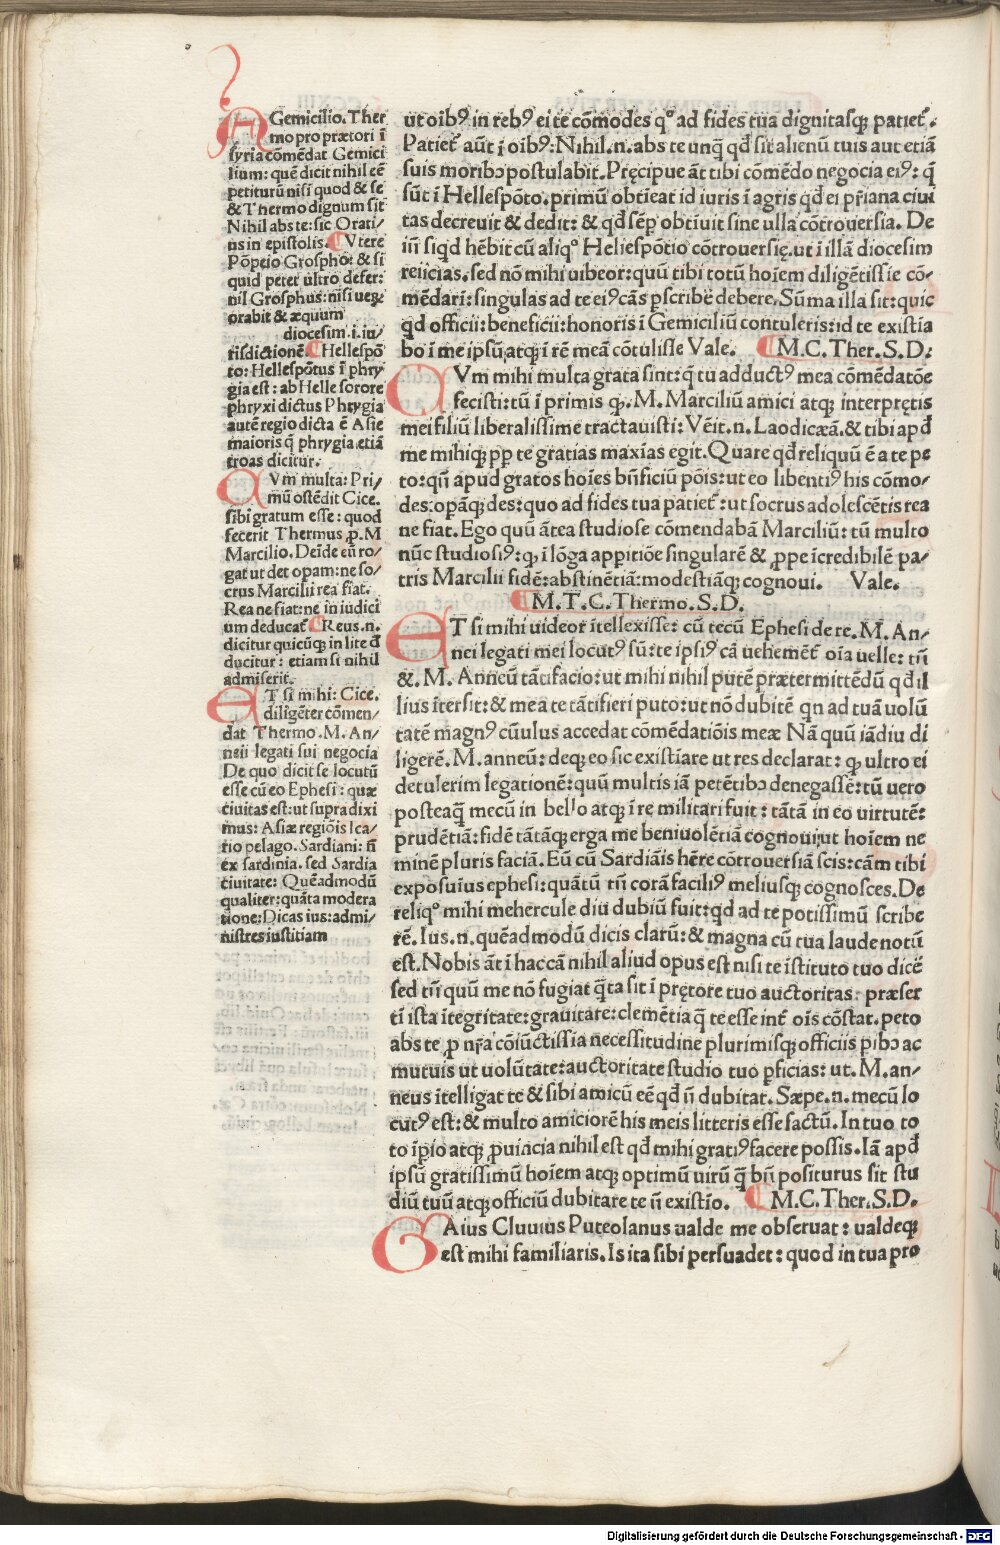 AGemicilio. Ther
mo pro prætori ī
syria cōmēdat Gemici
lium: quē dicit nihil eē
petiturū nisi quod & se
& Thermo dignum sit
Nihil abs te: sic Orati/
us in epistolis. Vtere
Pōpeio Grosphot & si
quid petet ultro defer:
nil Grosphus: nisi ueꝝ
orabit & æquum
diocesim .i. iu/
risdictionē. Hellespō
to: Hellespōtus ī phry
gia est: ab Helle sorore
phryxi dictus Phrygia
autē regio dicta ē Asie
maioris q̄ phrygia etiā
troas dicitur.
CVm multa: Pri/
mū ostēdit Cice.
sibi gratum esse: quod
fecerit Thermus ꝓ M
Marcilio. Deīde eū ro/
gat ut det opam: ne so/
crus Marcilii rea fiat.
Rea ne fiat: ne in iudici
um deducat̄ Reus .n.
dicitur quicūqꝫ in lite đ
ducitur: etiam si nihil
admiserit.
ET si mihi: Cice.
diligēter cōmen/
dat Thermo .M. An/
neii legati sui negocia
De quo dicit se locutū
esse cū eo Ephesi: quæ
ciuitas est: ut supra dixi
mus: Asiæ regiōis Ica/
rio pelago. Sardiani: n̄
ex sardinia. sed Sardia
ciuitate: Quēadmodū
qualiter: quāta modera
tione: Dicas ius: admi/
nistres iustitiam
ut oibꝰ in rebꝰ ei te cōmodes qͦ ad fides tua dignitasqꝫ patiet̄.
Patiet̄ aūt ī oibꝰ: Nihil .n. abs te unq̄ qđ sit alienū tuis aut etiā
suis moribꝫ postulabit. Pręcipue āt tibi cōmēdo negocia eiꝰ: q̄
sūt ī Hellespōto. primū obtieat id iuris ī agris qđ ei pr̄iana ciui
tas decreuit & dedit: & qđ sēꝑ obtiuit sine ulla cōtrouersia. De
iū siqd hēbit cū aliqͦ Hellespōtio cōtrouersię. ut ī illā diocesim
reiicias. sed nō mihi uibeor: quū tibi totū hoīem diligētissīe cō/
mēdari: singulas ad te eiꝰ cās ꝑscribē debere, Sūma illa sit: quic
qđ officii: beneficii: honoris ī Gemiciliū contuleris: id te existīa
bo ī me ipsū, atqꝫ ī rē meā cōtulisse Vale. M.C. Ther. S.D.
CVm mihi multa grata sint: q̄ tu adductꝰ mea cōmēdatōe
fecisti: tū ī primis qꝫ .M. Marciliū amici atqꝫ interpretis
mei filiū liberalissime tractauisti: Vēit .n. Laodicæā. & tibi apđ
me mihiqꝫ ꝓp te gratias maxīas egit. Quare qđ reliquū ē a te pe
to: qn̄ apud gratos hoīes bn̄ficiū pōis: ut eo libentiꝰ his cōmo/
des: opāqꝫ des: quo ad fides tua patiet̄: ut socrus adolescētis rea
ne fiat. Ego quū ātea studiose cōmendabā Marciliū: tū multo
nūc studiosiꝰ: qꝫ ī lōga appitiōe singularē & ꝓpe īcredibilē pa/
tris Marcilii fidē: abstinētiā: modestiāqꝫ cognoui. Vale.
M.T.C. Thermo. S.D.
ET si mihi uideor ītellexisse: cū tecū Ephesi de re. M. An/
nei legati mei locutꝰ sū: te ipsiꝰ cā uehemēt̄ oīa uelle: tn̄
&. M. Anneū tāti facio: ut mihi nihil putē prætermittēdū qđ il
lius ītersit: & me a te tāti fieri puto: ut nō dubitē qn ad tuā uolū
tatē magnꝰ cūulus accedat cōmēdatiōis meæ Nā quū iādiu di
ligerē. M. anneū: deqꝫ eo sic existīare ut res declarat: qꝫ ultro ei
detulerim legationē: quū multis iā petētibꝫ denegassē: tū uero
posteaq̄ mecū in bello atqꝫ ī re militari fuit: tātā in eo uirtutē:
prudētiā: fidē tātāqꝫ erga me beniuolētiā cognoui: ut hoīem ne
minē pluris faciā. Eū cū Sardiāis hēre cōtrouersiā scis: cām tibi
exposuius ephesi: quātū tn̄ corā faciliꝰ meliusqꝫ cognosces. De
reliqͦ mihi mehercule diu dubiū fuit: qđ ad te potissimū scribe
rē. Ius .n. quēadmodū dicis clarū: & magna cū tua laude notū
est. Nobis āt ī hac cā nihil aliud opus est nisi te īstituto tuo dicē
sed tn̄ quū me nō fugiat q̄ta sit ī prętore tuo auctoritas: præser
tī ista ītegritate: grauitate: clemētia q̄ te esse int̄ oīs cōstat. peto
abs te ꝓ nr̄a cōiūctissīa necessitudine plurimisqꝫ officiis pibꝫ ac
mutuis ut uolūtate: auctoritate studio tuo ꝑficias: ut. M. an/
neus ītelligat te & sibi amicū eē qđ n̄ dubitat. Sæpe .n. mecū lo
cutꝰ est: & multo amiciorē his meis litteris esse factū. In tuo to
to īpio atqꝫ ꝓuincia nihil est qđ mihi gratiꝰ facere possis. Iā apđ
ipsū gratissimū hoīem atqꝫ optimū uirū q̄ bn̄ positurus sit stu
diū tuū atqꝫ officiū dubitare te n̄ existīo. M.C. Ther. S.D.
GAius Cluuius Puteolanus ualde me obseruat: ualdeqꝫ
est mihi familiaris. Is ita sibi persuadet: quod in tua pro
Digitalisierung gefördert durch die Deutsche Forschungsgemeinschaft - DFG